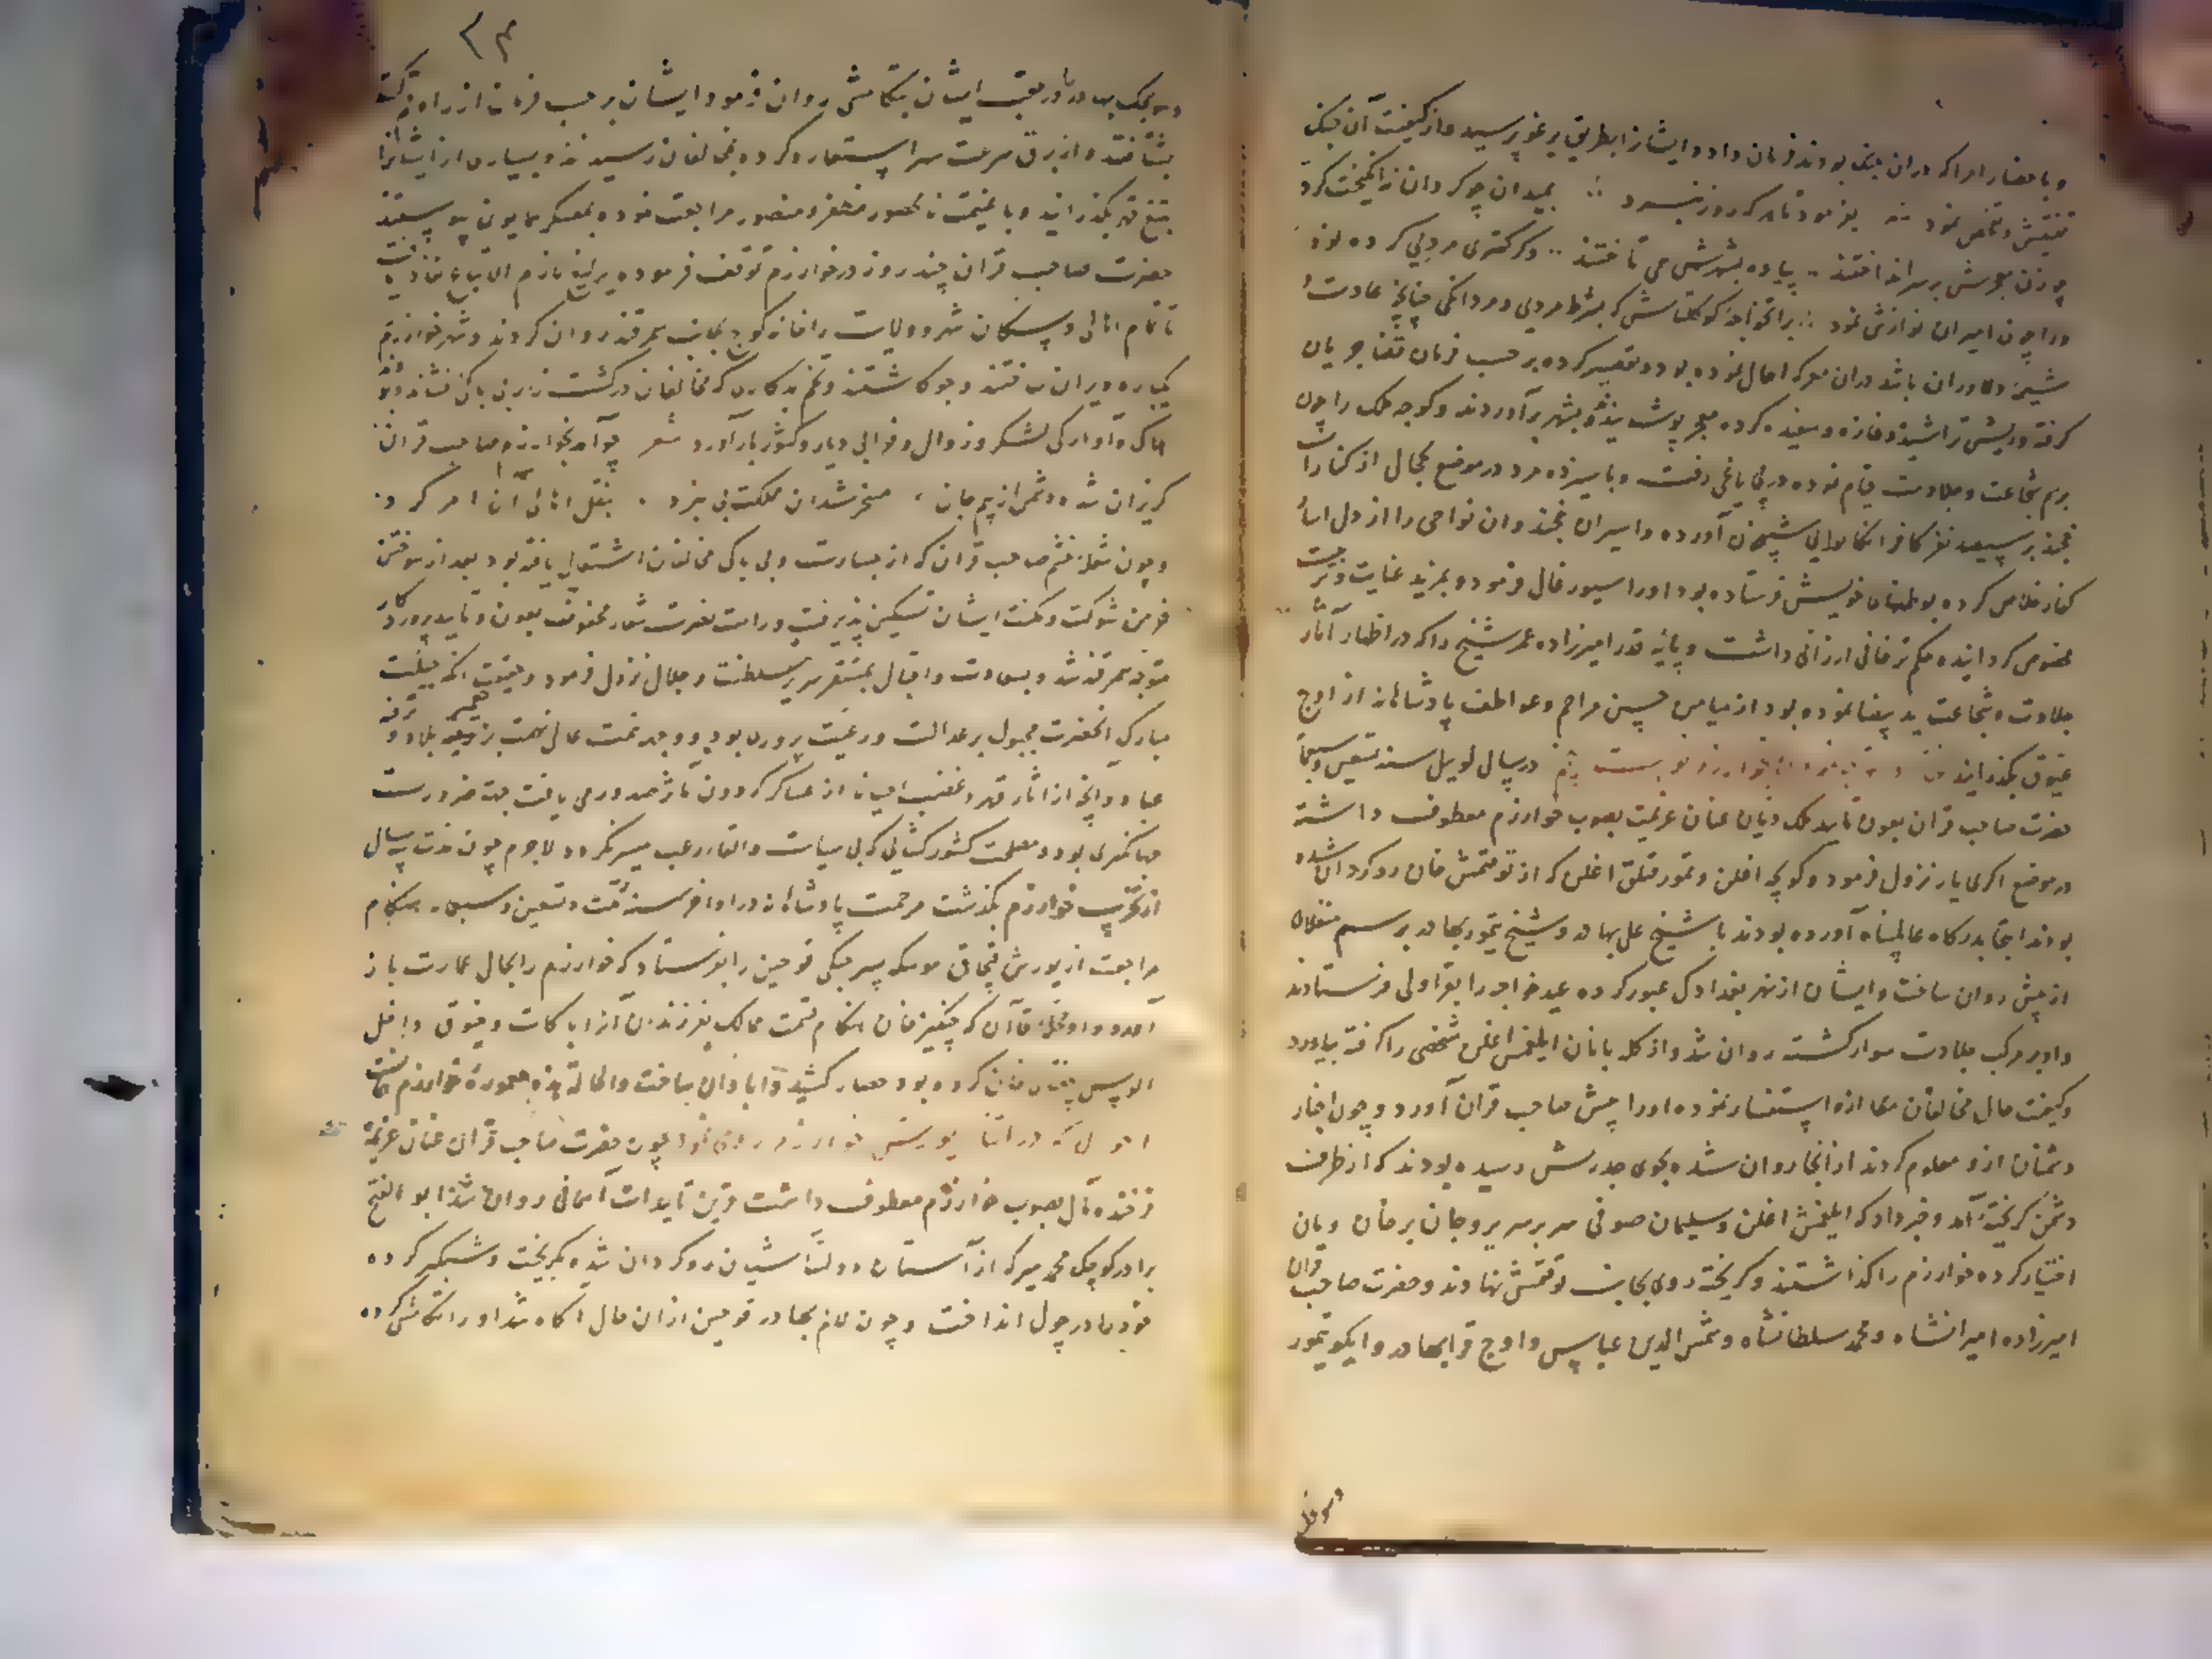 و باحضار امرا که دران جنگ بودند فرمان داد و ایشانرا بطریق یرغو پرسید و از کیفیت آن جنگ
تفتیش و تفحص نمود بفرمود تا هر که روز نبرد بمیدان چو کردان نه انگیخت کرد
چو زن معجرش بر سر انداختند پیاده بشهرش همی تاختند و کر کمتری مردیی کرده بود
ورا چون امیران نوازش نمود براتخواجه کوکلتاش که بشرط مردی و مردانکی چنانچه عادت
شیر دلاوران باشد دران معرکه اهمال نموده بود و تقصیر کرده بر حسب فرمان قضا جریان
گرفته و ریش تراشیده و غازه و سفیده کرده معجر پوشانیدند و بشهر برآوردند و کوچه ملک را چون
برسم شجاعت و جلادت قیام نموده در پی یاغی رفت و با سیزده مرد در موضع بجال از کنار آب
خجند بر سیصد نفر کافر انکاتوایی شبیخون آورده و اسیران خجند و ان نواحی را از دل
کفار خلاص کرده بوطنهای خویش فرستاده بود اورا سیورغال فرمود و بمزید عنایت و تربیت
مخصوص کردانیده حکم ترخانی ارزانی داشت و پایه قدر امیرزاده عمر شیخ را که در اظهار آثار
جلادت و شجاعت ید بیضا نموده بود از میامن حسن مراحم و عواطف پادشاهانه از اوج
عیوق بکذرانید در سال لوییل سنه تسعین و سبعمائه
حضرت صاحب قران بعون تایید ملک دیان عنان عزیمت بصوب خوارزم معطوف داشته
در موضع اکری یار نزول فرمود و کونجه اغلن و تمور قتلق اغلن که از توقتمش خان روگردان شده
بودند و التجا بدرکاه عالمپناه آورده بودند با شیخ علی بهادر و شیخ تیمور بهادر برسم منقلای
از پیش روان ساخت و ایشان از نهر بغدادک عبور کرده عید خواجه را بقراولی فرستادند
و او بر مرکب جلادت سوار کشته روان شد و از کله بانان ایلغمش اغلن شخصی را گرفته بیاورد
و کیفیت حال مخالفان را ازو استفسار نموده اورا پیش صاحب قران آورد و چون اخبار
دشمنان ازو معلوم کردند از انجا روان شده بجوی جدرش رسیده بودند که از طرف
دشمن کریخته آمد و خبر داد که ایلغمش اغلن و سلیمان صوفی سر بر سریر و جان بر خان و مان
اختیار کرده خوارزم را گذاشتند و کریخته روی بجانب توقتمش نهادند و حضرت صاحب قران
امیرزاده امیرانشاه و محمد سلطانشاه و شمس الدین عباس و اوج قرا بهادر و ایکو تیمور
و سونجک بهادر را در عقب ایشان بتکامشی روان فرمود ایشان بر حسب فرمان از راه
بشتافتند و از برق سرعت سیر استعاره کرده بمخالفان رسیدند و بسیاری از ایشانرا
بتیغ قهر بکذرانیدند و با غنیمت نامحصور مظفر و منصور مراجعت نموده بمعسکر همایون پیوستند
حضرت صاحب قران چند روز در خوارزم توقف فرموده یرلیغ لازم الاتباع نفاذ یافت
تا تمام اهالی و سکان شهر و ولایت را خانه کوچ بجانب سمرقند روان کردند و شهر خوارزم
یکباره ویران ساختند و جو کاشتند و تخم بدکاری که مخالفان در کشت زار بی باکی
هلاک و آوارکی لشکر و زوال و خرابی دیار و کشور بار آورد شعر چو آمد بخوارزم صاحب قران
گریزان شده دشمن از بیم جان مسخر شد ان مملکت بی نبرد بنقل اهالی آن امر کرد
و چون شعله خشم صاحب قران که از جسارت و بی باکی مخالفان اشتعال یافته بود بعد از سوختن
خرمن شوکت و مکنت ایشان تسکین پذیرفت ورایت نصرت شعار محفوف بعون و تایید پروردگار
متوجه سمرقند شد و بسعادت و اقبال بمستقر سریر سلطنت و جلال نزول فرمود و حقیقت آنکه جبلت
مبارک انحضرت مجبول بر عدالت و رعیت پروری بود و وجهه همت عالی نهمت بر تعمیر بلاد و ترفیه
عباد و آنچه از آثار قهر و غضب احیانا از عساکر کردون مآثر صدور می یافت بجهت ضرورت
جهانگیری بود و مصلحت کشور کشایی که بی سیاست و القاء رعب میسر نکردد لاجرم چون مدت سه سال
از تخریب خوارزم بکذشت مرحمت پادشاهانه در اواخر سنه ثلث و تسعین و سبعمایه هنکام
مراجعت از یورش قبچاق موسکه پسر جنکی قوجین را بفرستاد که خوارزم را بحال عمارت باز
آورد و او محله قاآن که چنکیزخان هنکام قسمت ممالک بفرزندان آنرا با کات و خیوق داخل
الوس چغتای خان کرده بود حصار کشید و آبادان ساخت و الحالة هذه معموره خوارزم
در اثنا یورش خوارزم روی نمود چون حضرت صاحب قران عنان عزیمت
فرخنده مآل بصوب خوارزم معطوف داشت قرین تاییدات آسمانی روان شد ابو الفتح
برادر کوچک محمد میرکه از آستان دولت آشیان روکردان شده بکریخت و شبکیر کرده
خود را در چول انداخت و چون لالم بهادر قوجین ازان حال آکاه شد اورا تکامشی کرده